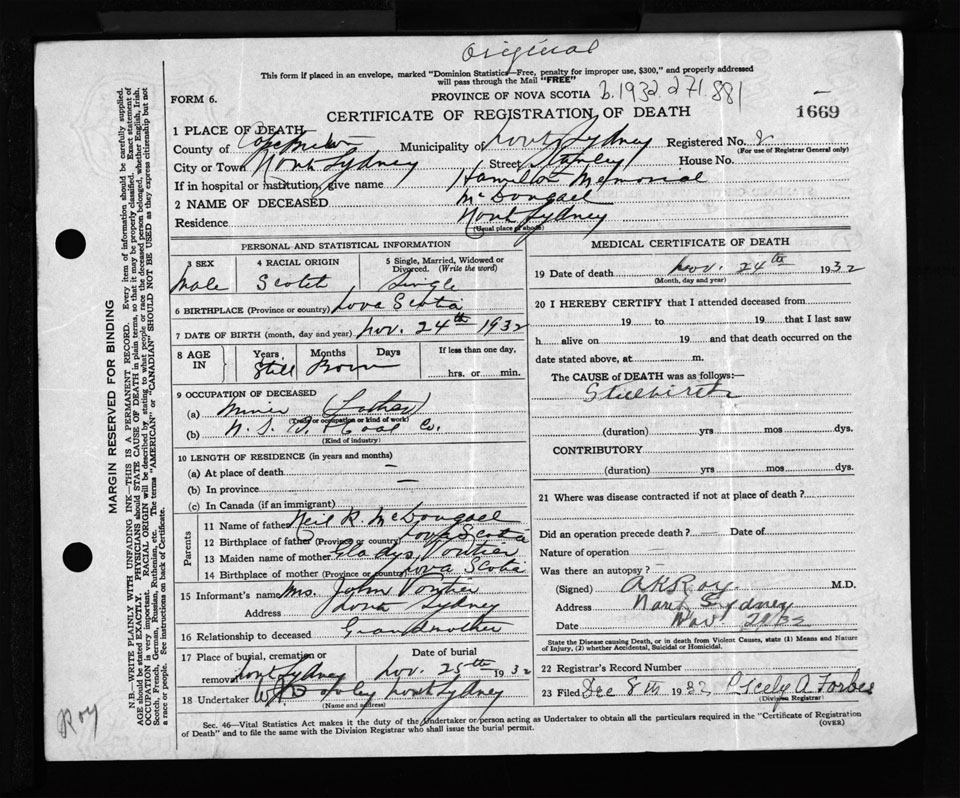 Original
This form if placed in an envelope, marked "Dominion Statistics—Free, penalty for improper use, $300," and properly addressed
will pass through the Mail "FREE"
FORM 6. PROVINCE OF NOVA SCOTIA b.1932.271.881
CERTIFICATE OF REGISTRATION OF DEATH 1669
1 PLACE OF DEATH
County of Cape Breton Municipality of North Sydney Registered No. 8
(For use of Registrar General only)
City or Town North Sydney Street Stanley House No.
If in hospital or institution, give name Hamilton Memorial
2 NAME OF DECEASED McDougall
Residence North Sydney
(Usual place of abode)
PERSONAL AND STATISTICAL INFORMATION
3 SEX 4 RACIAL ORIGIN 5 Single, Married, Widowed or
Divorced. (Write the word)
Male Scotch Single
6 BIRTHPLACE (Province or country) Nova Scotia
7 DATE OF BIRTH (month, day and year) Nov. 24th 1932
8 AGE IN Years Months Days If less than one day,
Still Born hrs. or min.
9 OCCUPATION OF DECEASED
(a) Miner (Father)
(Trade or occupation or kind of work)
(b) N. S. Coal Co.
(Kind of industry)
10 LENGTH OF RESIDENCE (in years and months)
(a) At place of death —
(b) In province —
(c) In Canada (if an immigrant)
Parents
11 Name of father Neil R. McDougall
12 Birthplace of father (Province or country) Nova Scotia
13 Maiden name of mother Gladys Pontier
14 Birthplace of mother (Province or country) Nova Scotia
15 Informant's name Mrs. John Pontier
Address North Sydney
16 Relationship to deceased Grandmother
17 Place of burial, cremation or Date of burial
removal North Sydney Nov. 25th 1932
18 Undertaker North Sydney
(Name and address)
MEDICAL CERTIFICATE OF DEATH
19 Date of death Nov. 24th 1932
(Month, day and year)
20 I HEREBY CERTIFY that I attended deceased from
19 to 19 that I last saw
h alive on 19 and that death occurred on the
date stated above, at m.
The CAUSE of DEATH was as follows:—
Stillbirth
(duration) yrs mos dys.
CONTRIBUTORY
(duration) yrs mos dys.
21 Where was disease contracted if not at place of death?
Did an operation precede death? Date of
Nature of operation —
Was there an autopsy? —
(Signed) A K Roy M.D.
Address North Sydney
Date Nov
State the Disease causing Death, or in death from Violent Causes, state (1) Means and Nature
of Injury, (2) whether Accidental, Suicidal or Homicidal.
22 Registrar's Record Number
23 Filed Dec 8th 1932 Cicely A. Forbes
(Division Registrar)
Sec. 46—Vital Statistics Act makes it the duty of the Undertaker or person acting as Undertaker to obtain all the particulars required in the "Certificate of Registration
of Death" and to file the same with the Division Registrar who shall issue the burial permit.
(OVER)
MARGIN RESERVED FOR BINDING
N.B.—WRITE PLAINLY WITH UNFADING INK—THIS IS A PERMANENT RECORD. Every item of information should be carefully supplied.
AGE should be stated EXACTLY. PHYSICIANS should STATE CAUSE OF DEATH in plain terms, so that it may be properly classified. Exact statement of
OCCUPATION is very important. RACIAL ORIGIN will be described by stating to what people or race the deceased person belonged, whether English, Irish,
Scotch, French, German, Russian, Ruthenian, etc. The terms "AMERICAN" or "CANADIAN" SHOULD NOT BE USED as they express citizenship but not
a race or people. See instructions on back of Certificate.
Roy